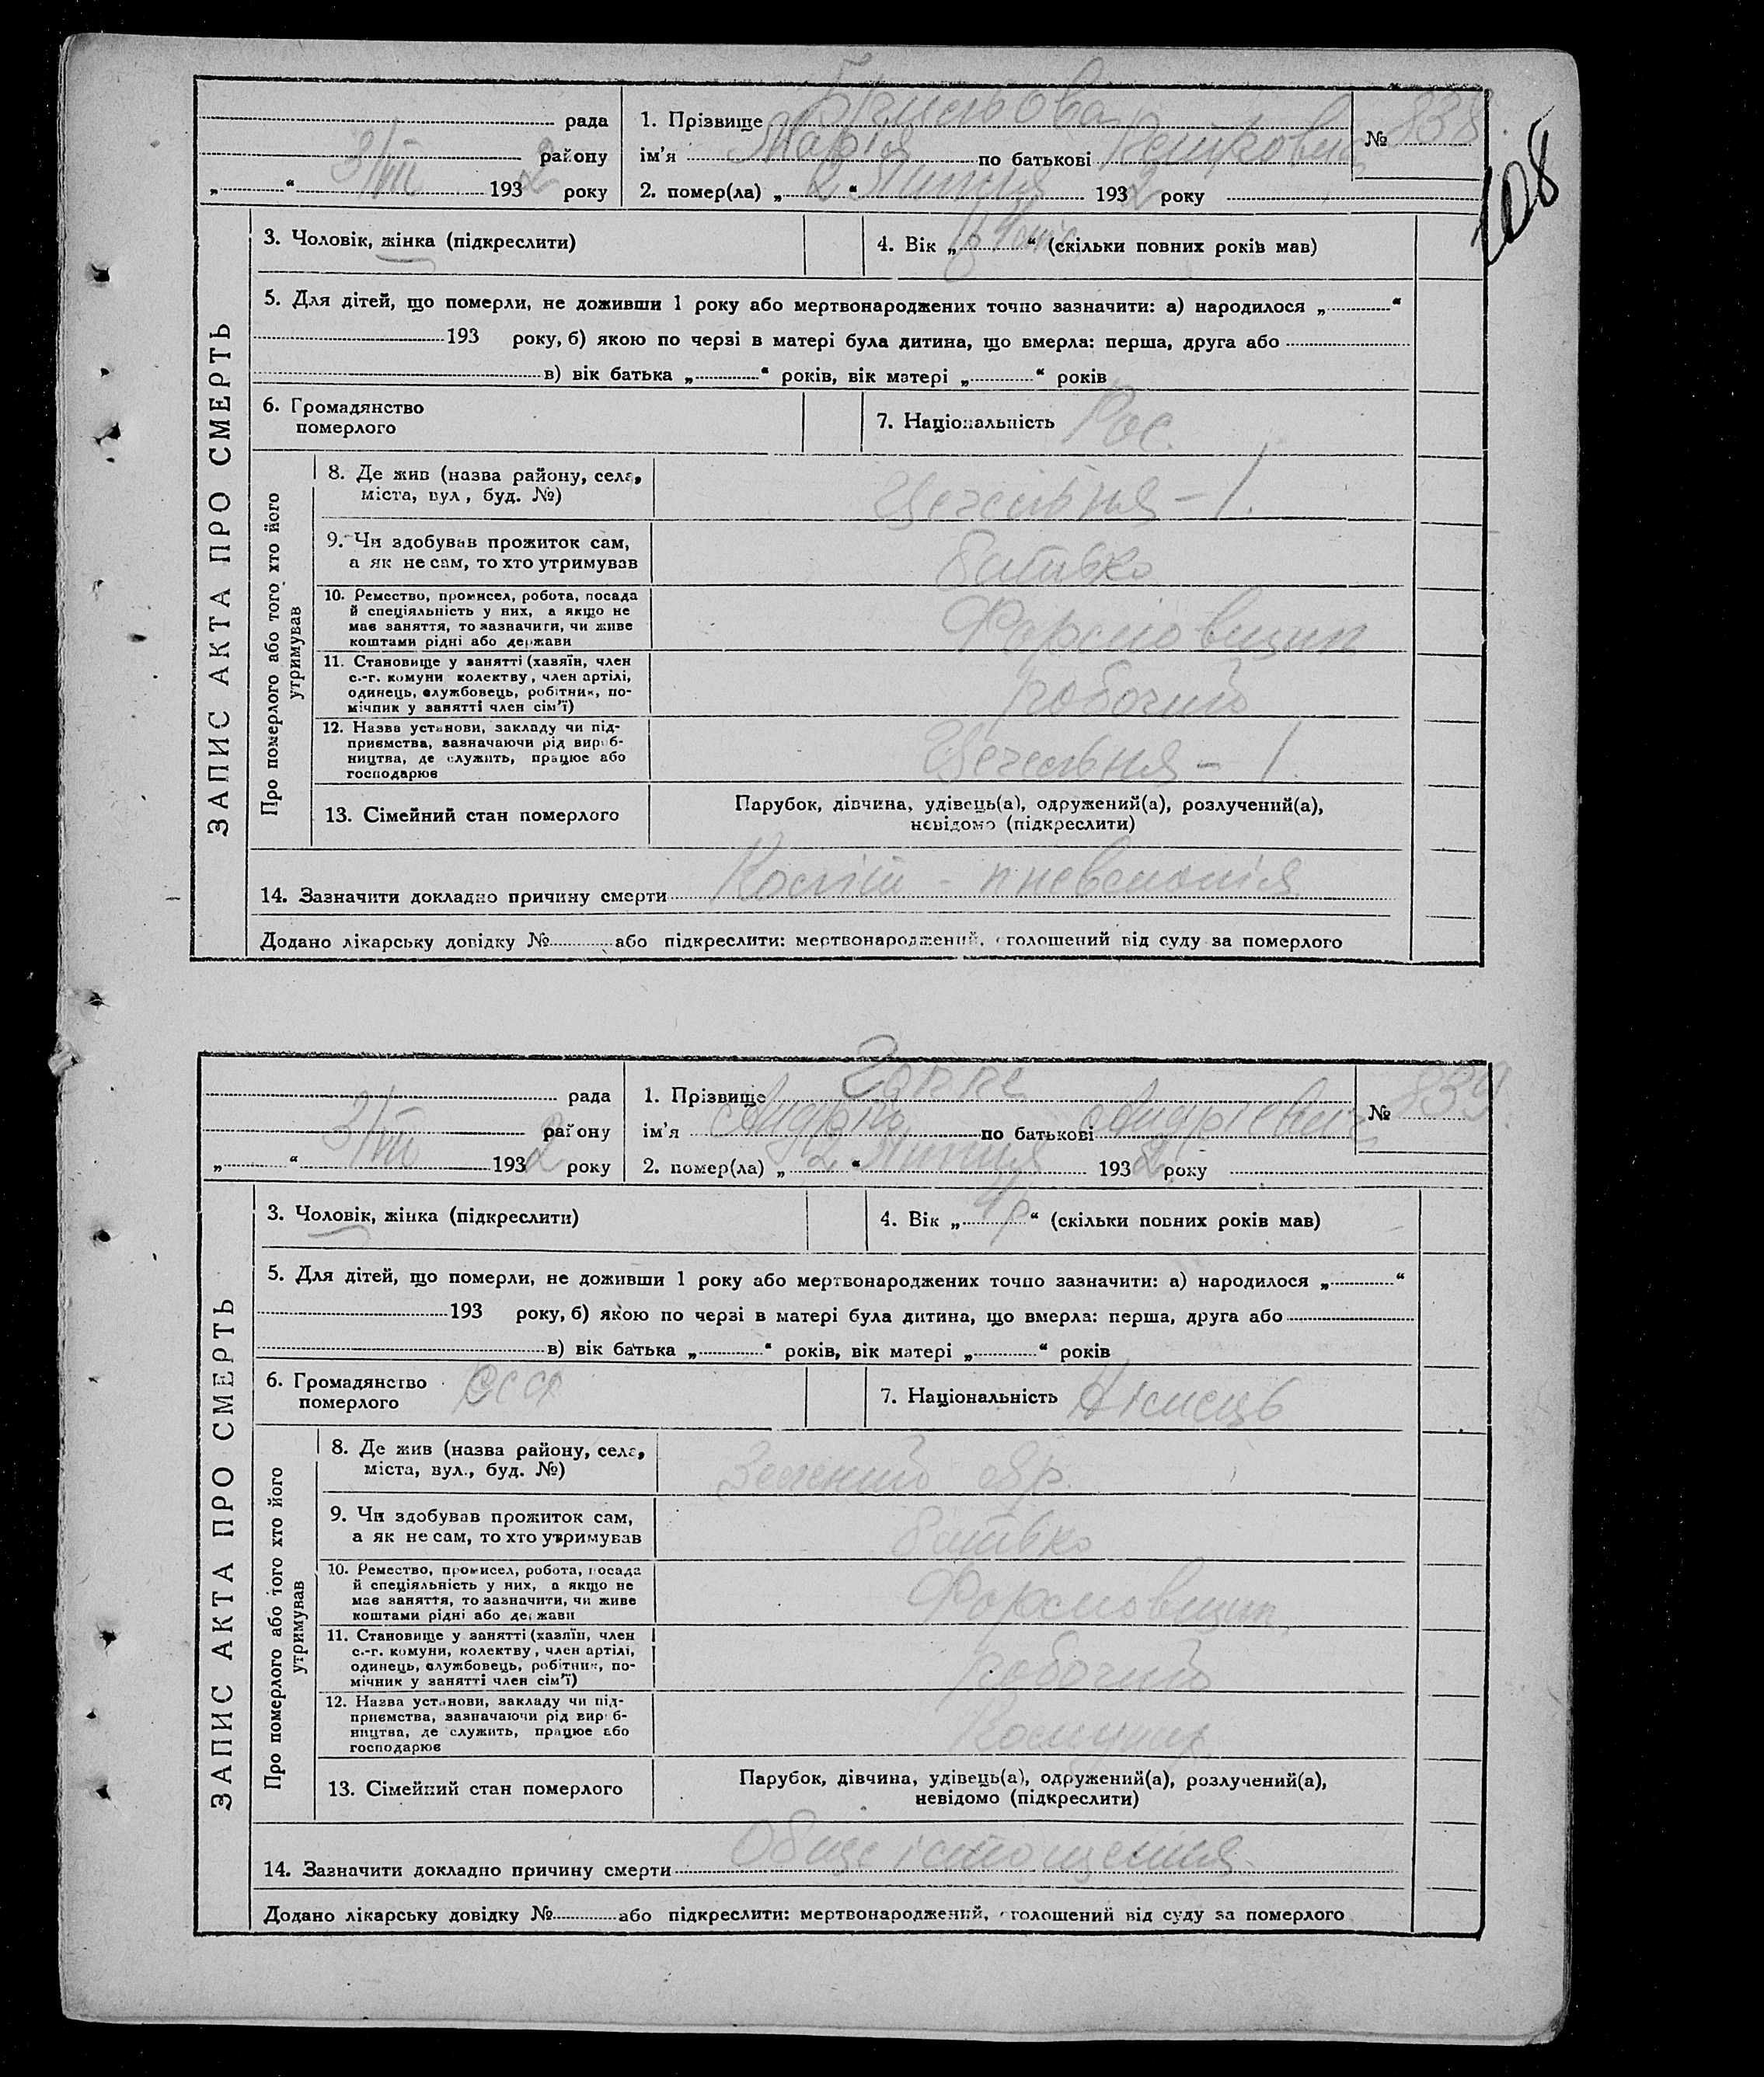 108
рада
району
3/VII 1932 року
1. Прізвище
ім'я Марія по батькові
2. помер(ла) „2“ Липня 1932 року
№ 838
ЗАПИС АКТА ПРО СМЕРТЬ
3. Чоловік, жінка (підкреслити)
4. Вік „“ (скільки повних років мав)
5. Для дітей, що померли, не доживши 1 року або мертвонароджених точно зазначити: а) народилося „“
193 року, б) якою по черзі в матері була дитина, що вмерла: перша, друга або
в) вік батька „“ років, вік матері „“ років
6. Громадянство
померлого
7. Національність Рос.
Про померлого або того хто його
утримував
8. Де жив (назва району, села,
міста, вул., буд. №)
Цегельня – 1.
9. Чи здобував прожиток сам,
а як не сам, то хто утримував
батько
10. Ремество, промисел, робота, посада
й спеціяльність у них, а якщо не
має заняття, то зазначити, чи живе
коштами рідні або держави
Формовщик
11. Становище у занятті (хазяїн, член
с.-г. комуни колективу, член артілі,
одинець, службовець, робітник, по-
мічник у занятті член сім'ї)
робочий
12. Назва установи, закладу чи під-
приємства, зазначаючи рід вироб-
ництва, де служить, працює або
господарює
Цегельня – 1.
13. Сімейний стан померлого
Парубок, дівчина, удівець(а), одружений(а), розлучений(а),
невідомо (підкреслити)
14. Зазначити докладно причину смерти пневмонія
Додано лікарську довідку № або підкреслити: мертвонароджений, оголошений від суду за померлого
рада
району
3/VII 1932 року
1. Прізвище Гоппе
ім'я Андрій по батькові Андрієвич
2. помер(ла) „2“ Липня 1932 року
№ 839
ЗАПИС АКТА ПРО СМЕРТЬ
3. Чоловік, жінка (підкреслити)
4. Вік „4 р“ (скільки повних років мав)
5. Для дітей, що померли, не доживши 1 року або мертвонароджених точно зазначити: а) народилося „“
193 року, б) якою по черзі в матері була дитина, що вмерла: перша, друга або
в) вік батька „“ років, вік матері „“ років
6. Громадянство
померлого
7. Національність Німець
Про померлого або того хто його
утримував
8. Де жив (назва району, села,
міста, вул., буд. №)
Зелений яр.
9. Чи здобував прожиток сам,
а як не сам, то хто утримував
батько
10. Ремество, промисел, робота, посада
й спеціяльність у них, а якщо не
має заняття, то зазначити, чи живе
коштами рідні або держави
Формовщик
11. Становище у занятті (хазяїн, член
с.-г. комуни, колективу, член артілі,
одинець, службовець, робітник, по-
мічник у занятті член сім'ї)
робочий
12. Назва установи, закладу чи під-
приємства, зазначаючи рід вироб-
ництва, де служить, працює або
господарює
Комунар
13. Сімейний стан померлого
Парубок, дівчина, удівець(а), одружений(а), розлучений(а),
невідомо (підкреслити)
14. Зазначити докладно причину смерти Обще істощения
Додано лікарську довідку № або підкреслити: мертвонароджений, оголошений від суду за померлого